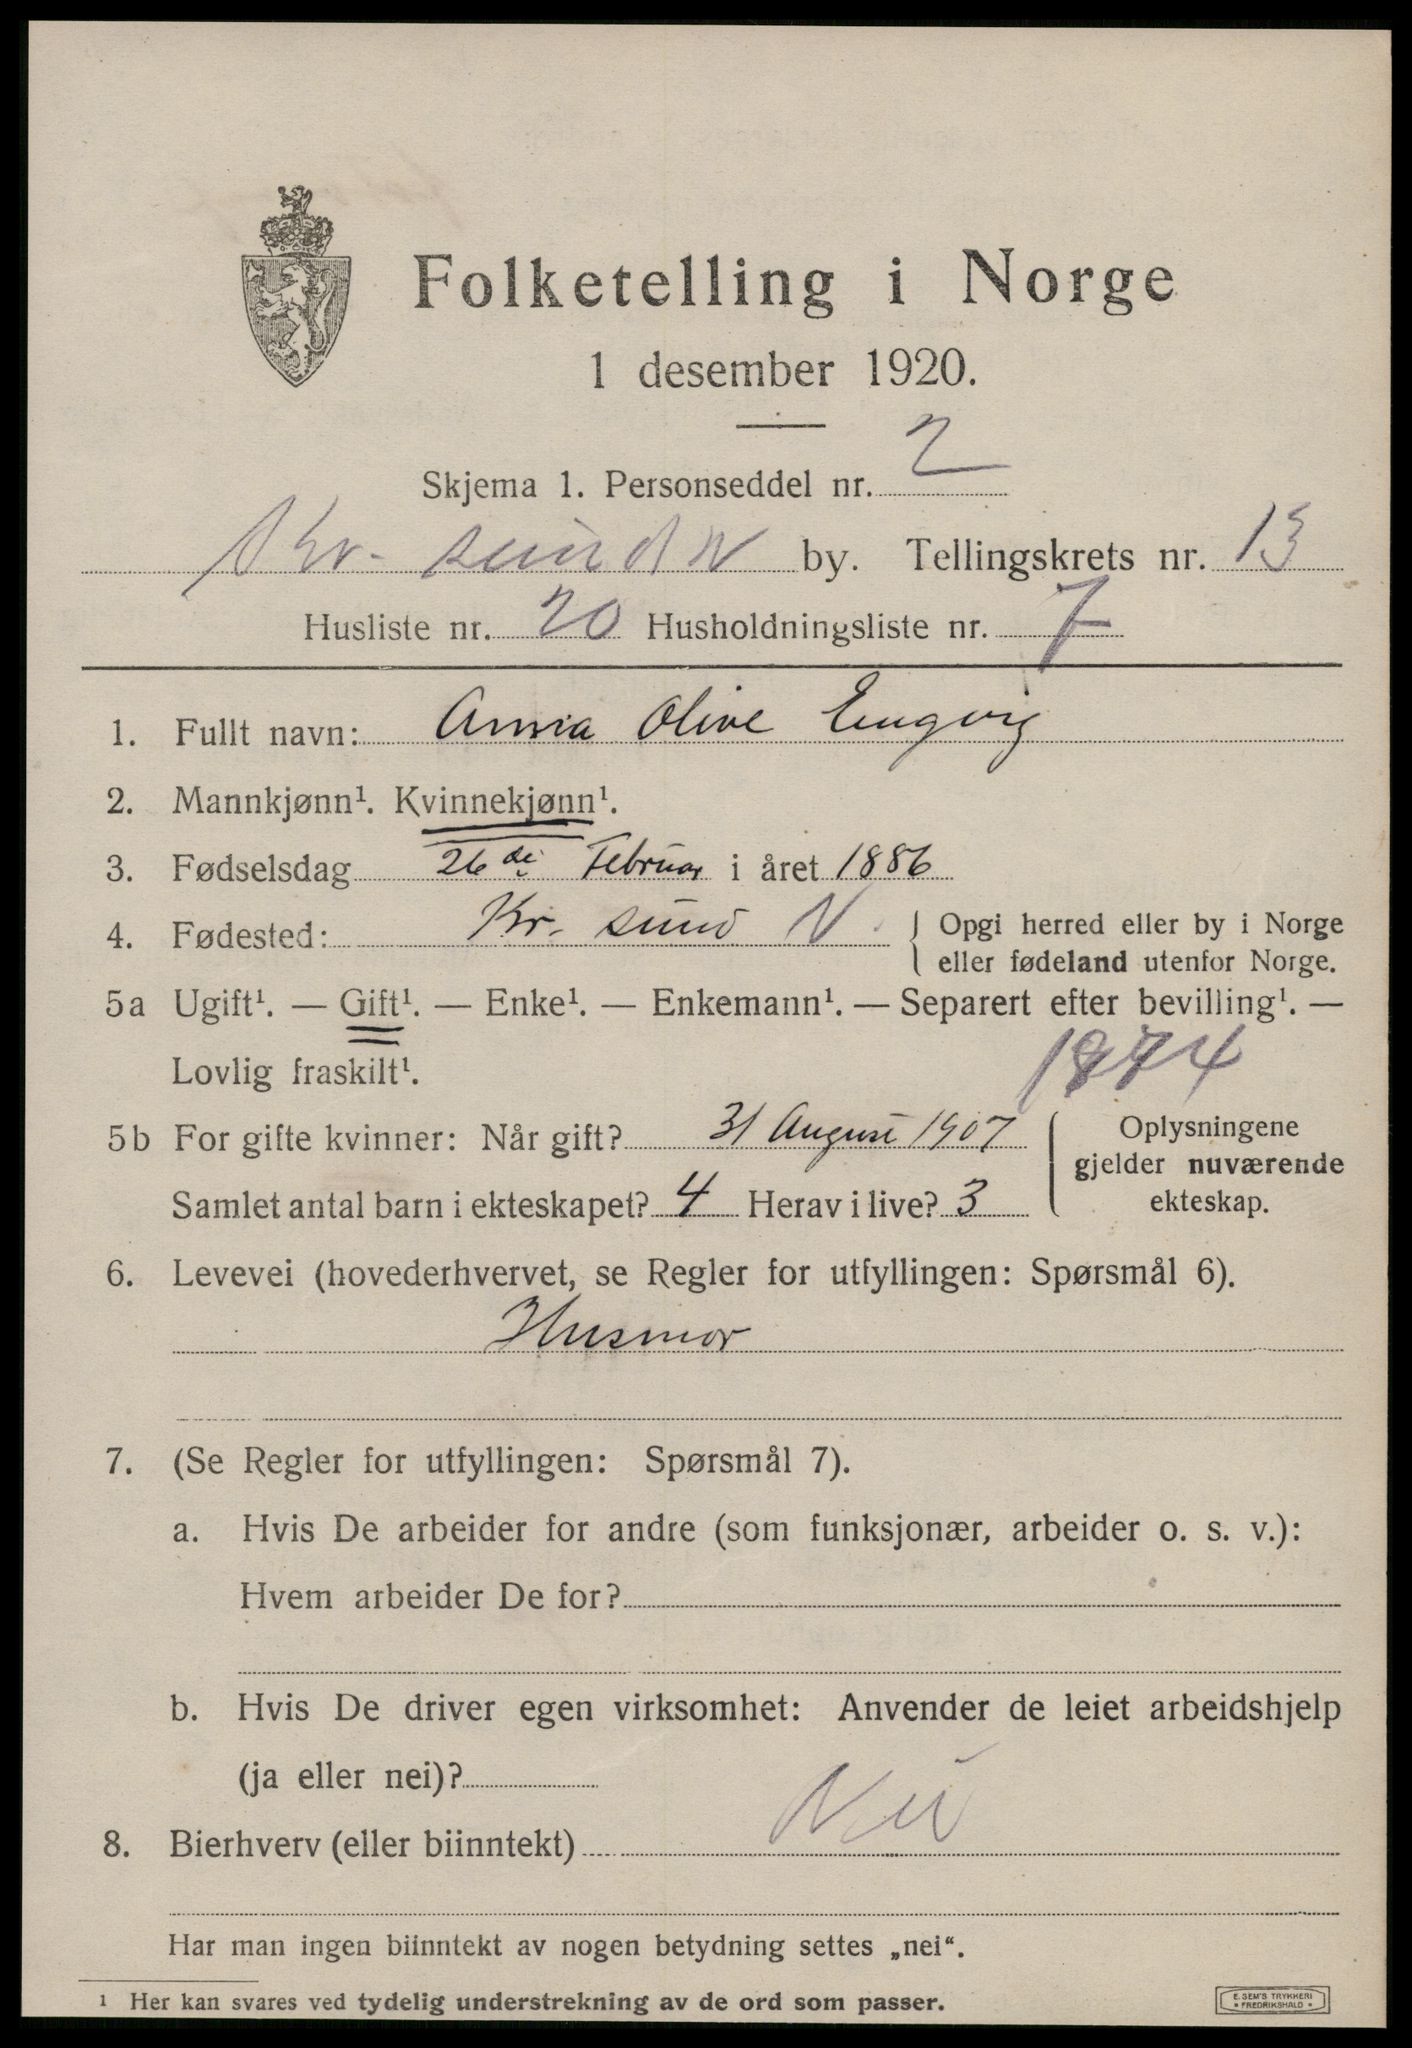 Folketelling i Norge
1 desember 1920.
Skjema 1. Personseddel nr. 2
Kr. sund N by. Tellingskrets nr. 13
Husliste nr. 20 Husholdningsliste nr. 7
1. Fullt navn: Anna Olive Engvig
2. Mannkjønn¹. Kvinnekjønn¹.
3. Fødselsdag 26de Februar i året 1886
4. Fødested: Kr. sund N. { Opgi herred eller by i Norge
eller fødeland utenfor Norge.
5a Ugift¹. — Gift¹. — Enke¹. — Enkemann¹. — Separert efter bevilling¹. —
Lovlig fraskilt¹. 1874
5b For gifte kvinner: Når gift? 31 August 1907 { Oplysningene
gjelder nuværende
ekteskap.
Samlet antal barn i ekteskapet? 4 Herav i live? 3
6. Levevei (hovederhvervet, se Regler for utfyllingen: Spørsmål 6).
Husmor
7. (Se Regler for utfyllingen: Spørsmål 7).
a. Hvis De arbeider for andre (som funksjonær, arbeider o. s. v.):
Hvem arbeider De for?
b. Hvis De driver egen virksomhet: Anvender de leiet arbeidshjelp
(ja eller nei)?
8. Bierhverv (eller biinntekt) Nei
Har man ingen biinntekt av nogen betydning settes „nei“.
¹ Her kan svares ved tydelig understrekning av de ord som passer.
E. SEM'S TRYKKERI
• FREDRIKSHALD •